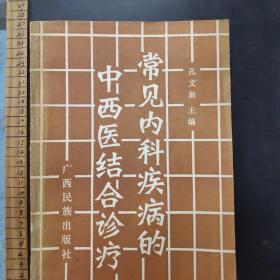 常见内科疾病的
中西医结合诊疗
孔文新 主编
广西民族出版社